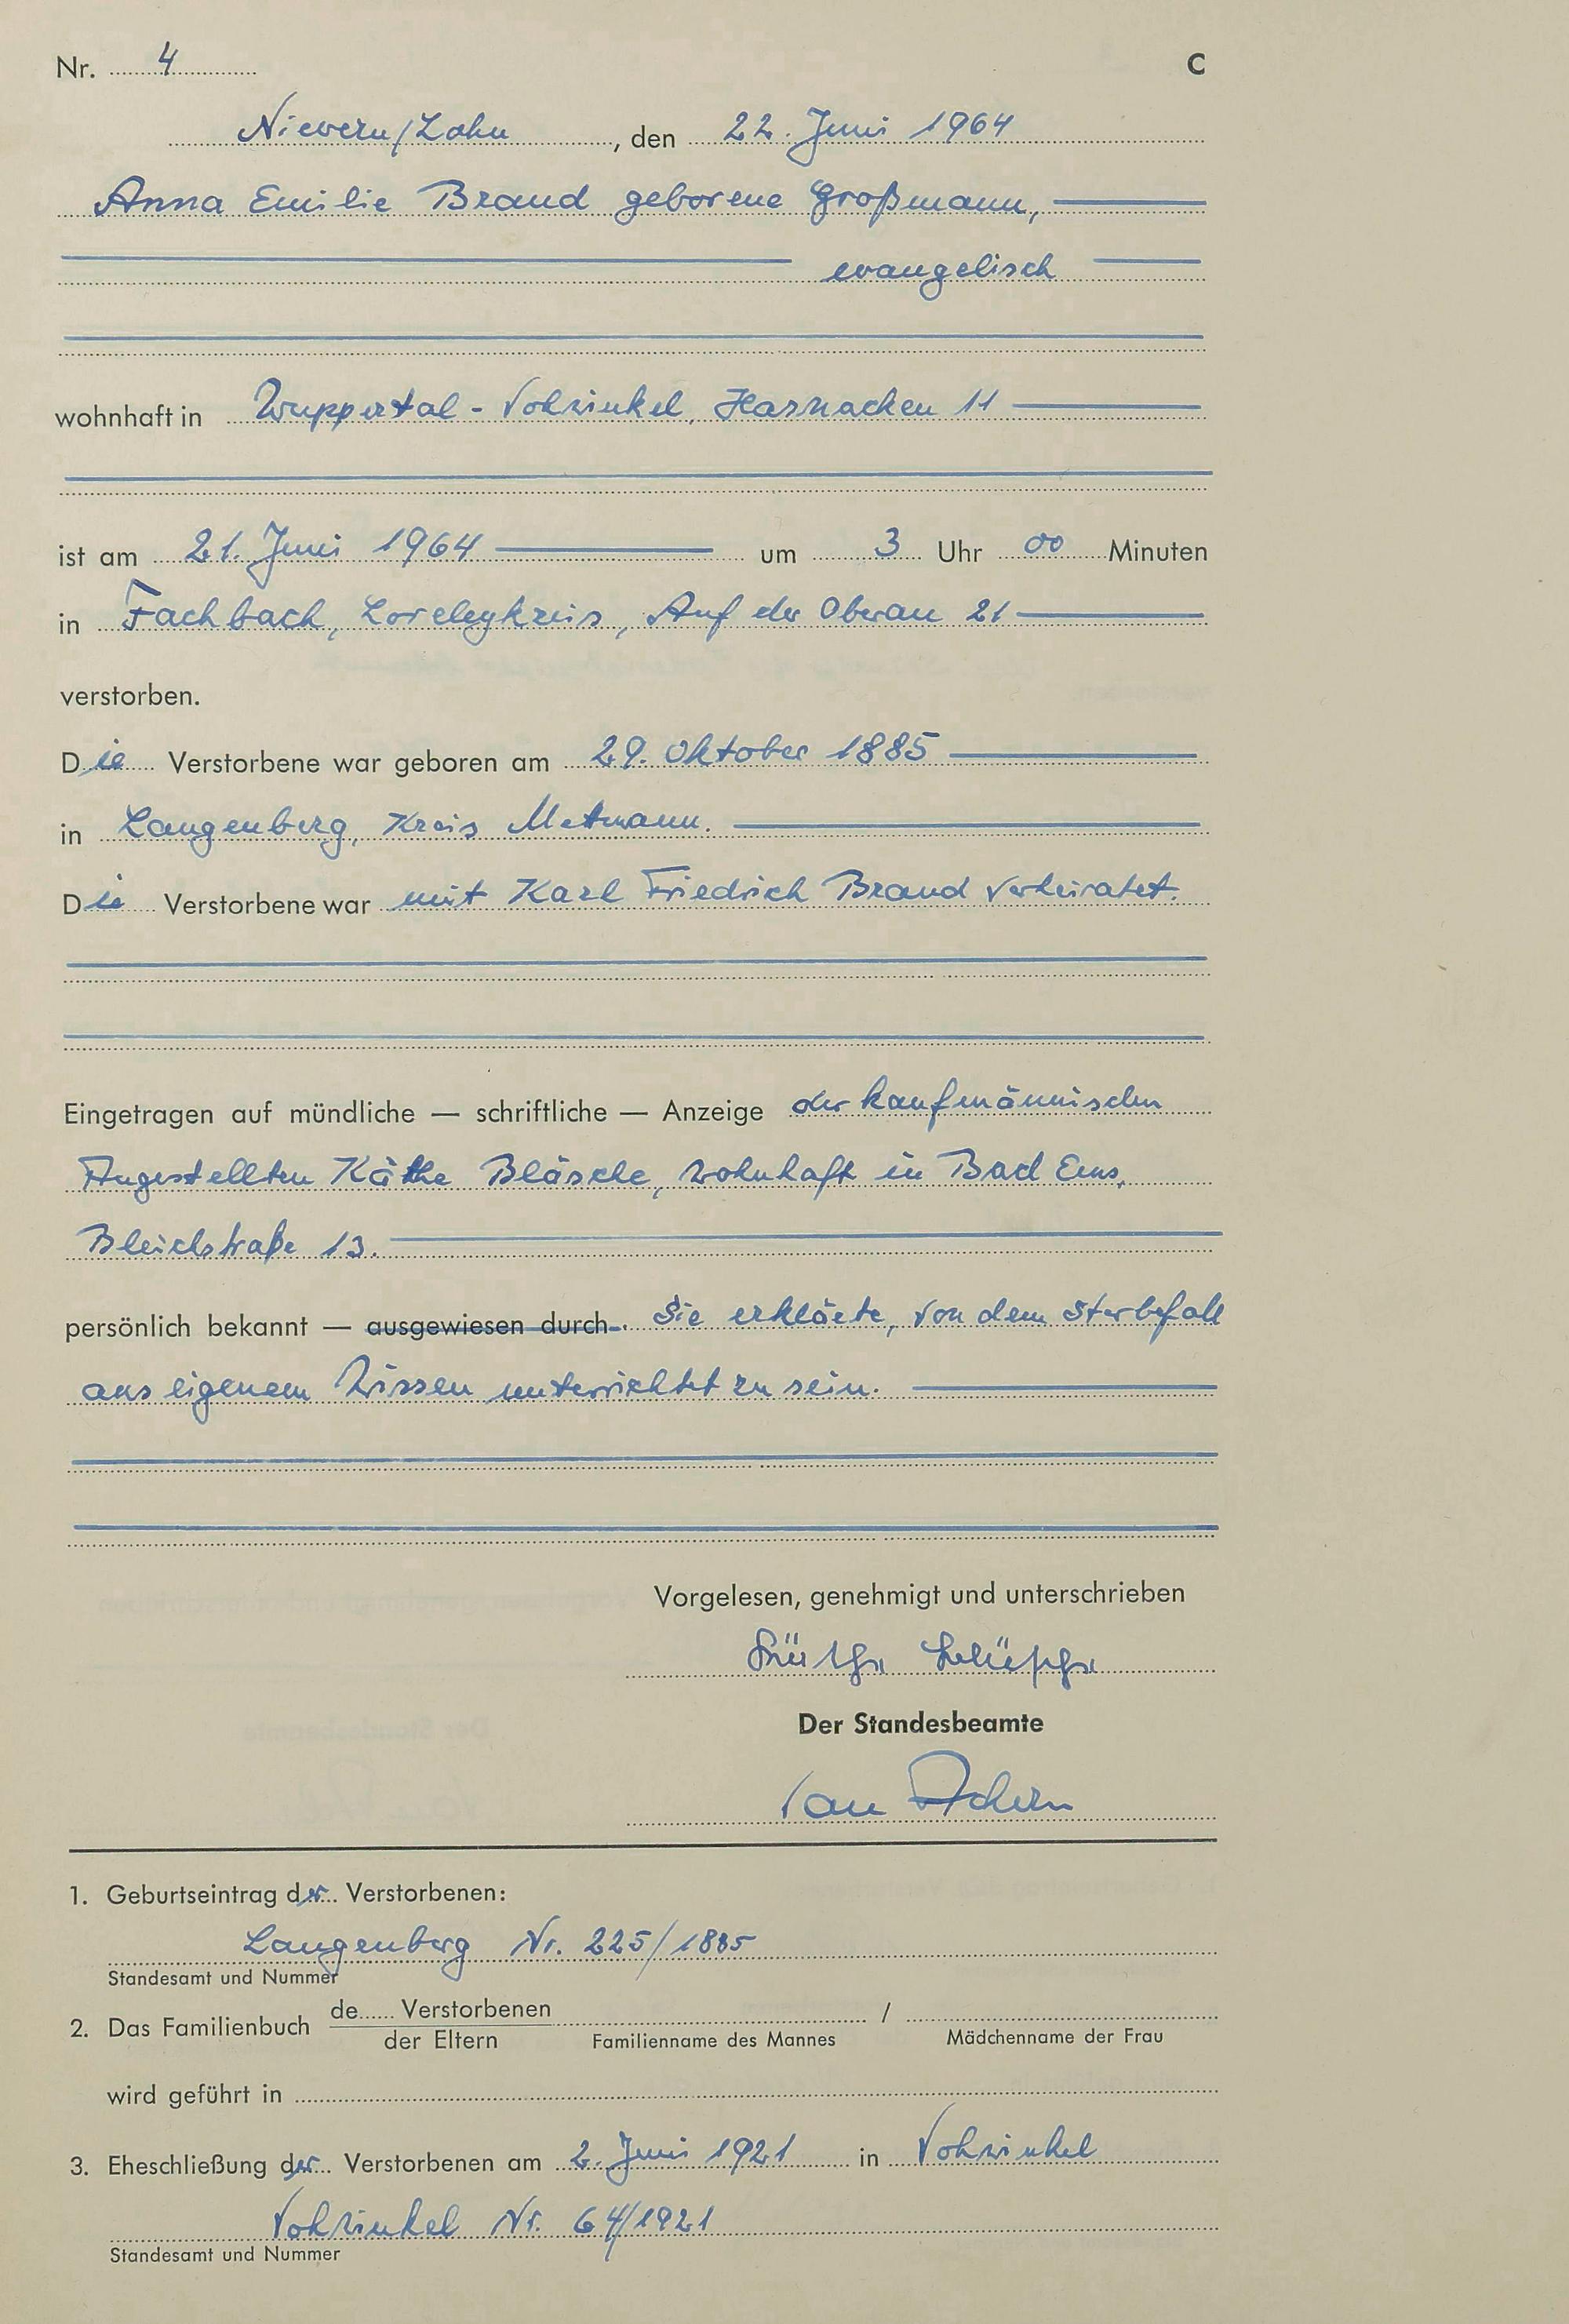 Nr. 4 C
Nievern/Lahn, den 22. Juni 1964
Anna Emilie Brand geborene Großmann,
evangelisch
wohnhaft in Wuppertal-Vohwinkel, Harnacken 11
ist am 21. Juni 1964 um 3 Uhr 00 Minuten
in Fachbach, Loreleykreis, Auf der Oberau 21
verstorben.
Die Verstorbene war geboren am 29. Oktober 1885
in Langenberg, Kreis Metmann.
Die Verstorbene war mit Karl Friedrich Brand verheiratet.
Eingetragen auf mündliche — schriftliche — Anzeige der kaufmännischen
Angestellten Käthe Bläsche, wohnhaft in Bad Ems,
Bleichstraße 13.
persönlich bekannt — ausgewiesen durch. Sie erklärte, von dem Sterbefall
aus eigenem Wissen unterrichtet zu sein.
Vorgelesen, genehmigt und unterschrieben
Käthe
Der Standesbeamte
1. Geburtseintrag der Verstorbenen:
Langenberg Nr. 225/1885
Standesamt und Nummer
2. Das Familienbuch de...... Verstorbenen /
der Eltern Familienname des Mannes Mädchenname der Frau
wird geführt in
3. Eheschließung der Verstorbenen am 2. Juni 1921 in Vohwinkel
Vohwinkel Nr. 64/1921
Standesamt und Nummer